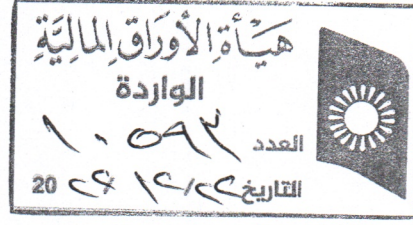 هيأة الأوراق المالية
الواردة
العدد ١٠٥٩٣
التاريخ ٢٤/١٢/ 20٢٤